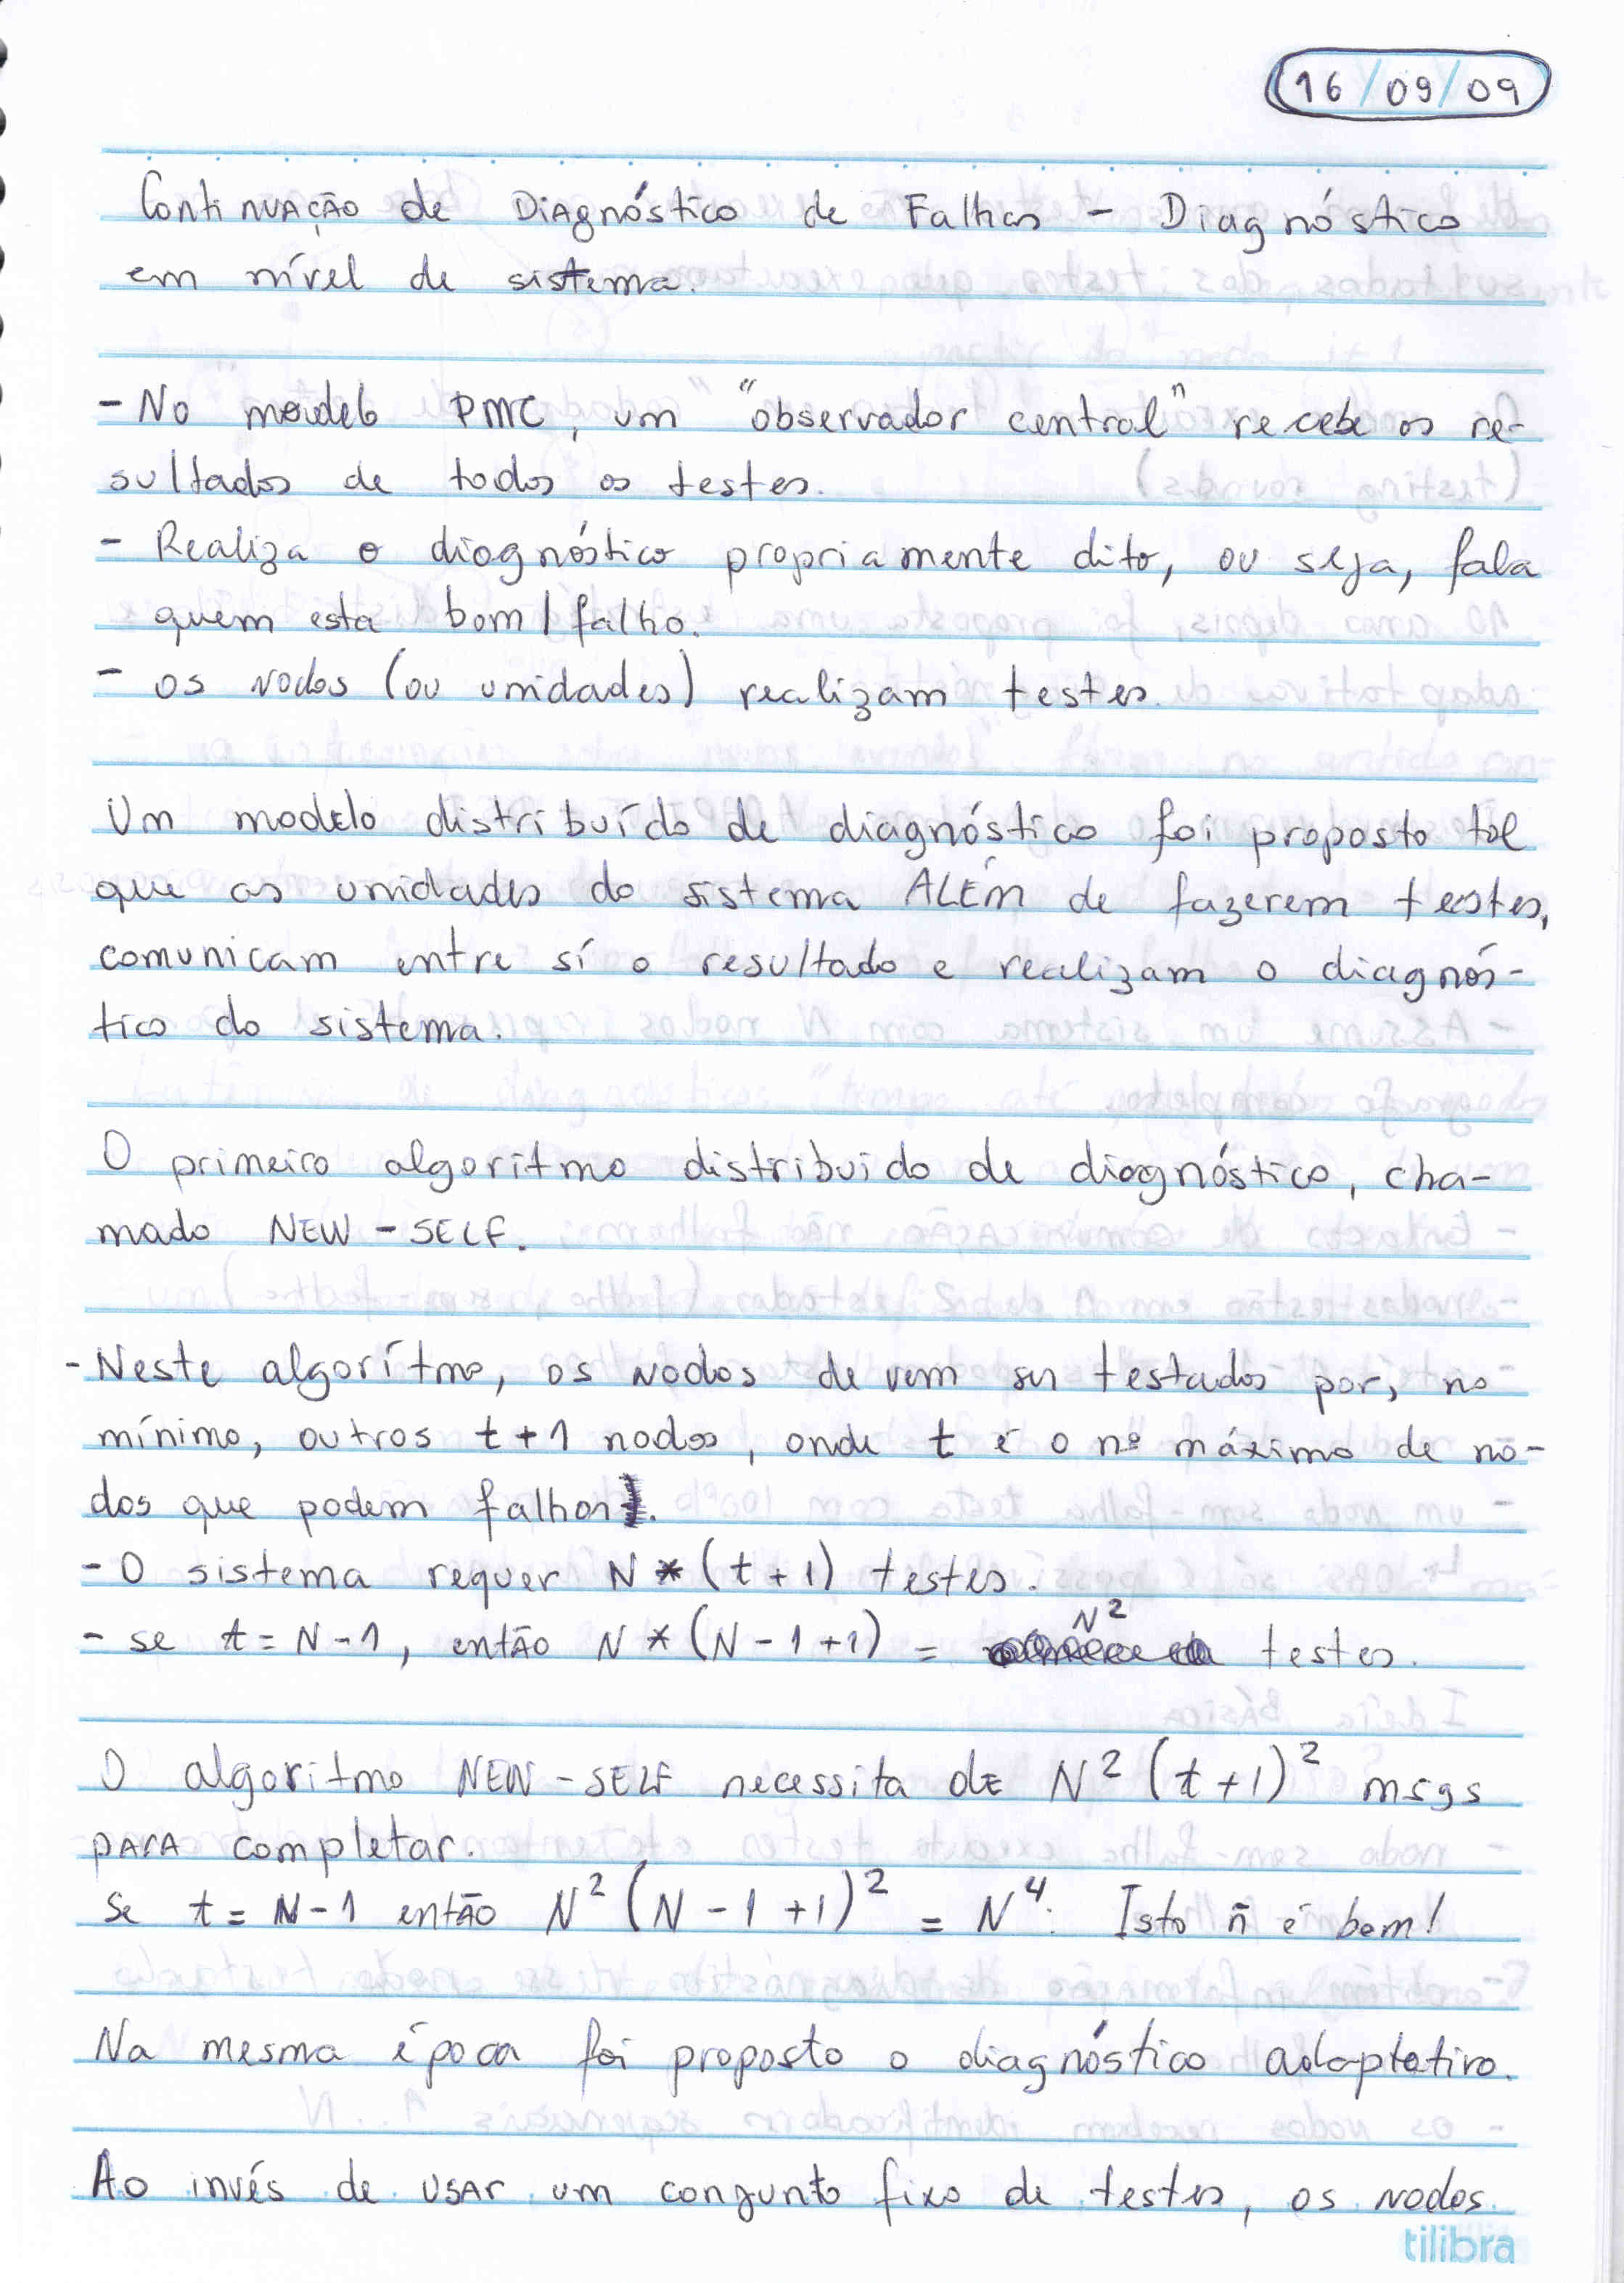 16/09/09
Continuação de Diagnóstico de Falhas - Diagnóstico
em nível de sistema.
- No modelo PMC, um "observador central" recebe os re-
sultados de todos os testes.
- Realiza o diagnóstico propriamente dito, ou seja, fala
quem esta bom/falho.
- os nodos (ou unidades) realizam testes.
Um modelo distribuído de diagnóstico foi proposto tal
que as unidades do sistema ALÉM de fazerem testes,
comunicam entre sí o resultado e realizam o diagnós-
tico do sistema.
O primeiro algoritmo distribuido de diagnóstico, cha-
mado NEW-SELF.
- Neste algorítmo, os nodos devem ser testados por, no
mínimo, outros t+1 nodos, onde t é o nº máximo de no-
dos que podem falhar.
- O sistema requer N * (t+1) testes.
- se t = N-1, então N * (N-1+1) = N² testes.
O algoritmo NEW-SELF necessita de N² (t+1)² msgs
para completar.
Se t = N-1 então N² (N-1+1)² = N⁴. Isto ñ é bom!
Na mesma época foi proposto o diagnóstico adaptativo.
Ao invés de usar um conjunto fixo de testes, os nodos
tilibra